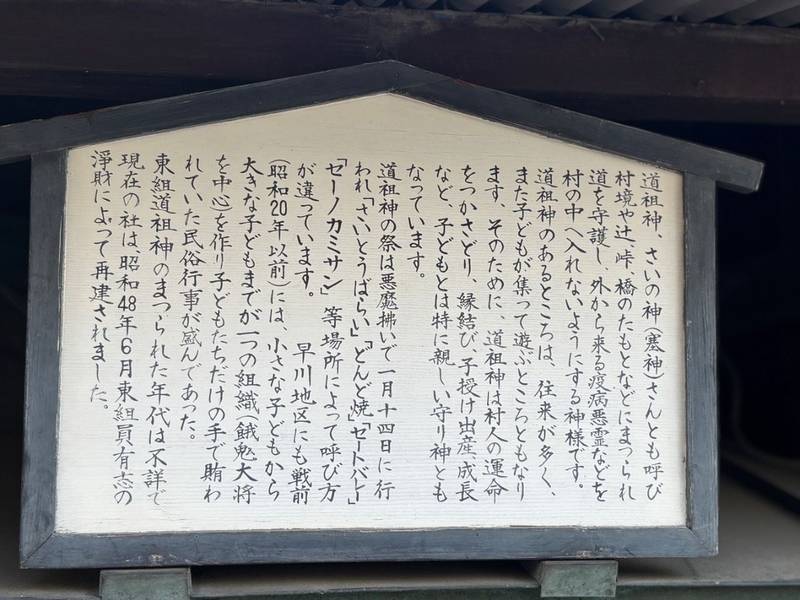 道祖神、さいの神(塞神)さんとも呼び
村境や辻、峠、橋のたもとなどにまつられ
道を守護し、外から来る疫病悪霊などを
村の中へ入れないようにする神様です。
道祖神のあるところは、往来が多く、
また子どもが集って遊ぶところともなり
ます、そのために、道祖神は村人の運命
をつかさどり、縁結び、子授け出産、成長
など、子どもとは特に親しい守り神とも
なっています。
道祖神の祭は悪魔拂いで一月十四日に行
われ「さいとうばらい」「どんど焼」「セートバレー」
「セーノカミサン」等場所によって呼び方
が違っています。 早川地区にも戦前
(昭和20年以前)には、小さな子どもから
大きな子どもまでが一つの組織(餓鬼大将
を中心)を作り子どもたちだけの手で賄わ
れていた民俗行事が盛んであった。
東組道祖神のまつられた年代は不詳で
現在の社は、昭和48年6月東組員有志の
淨財によって再建されました。